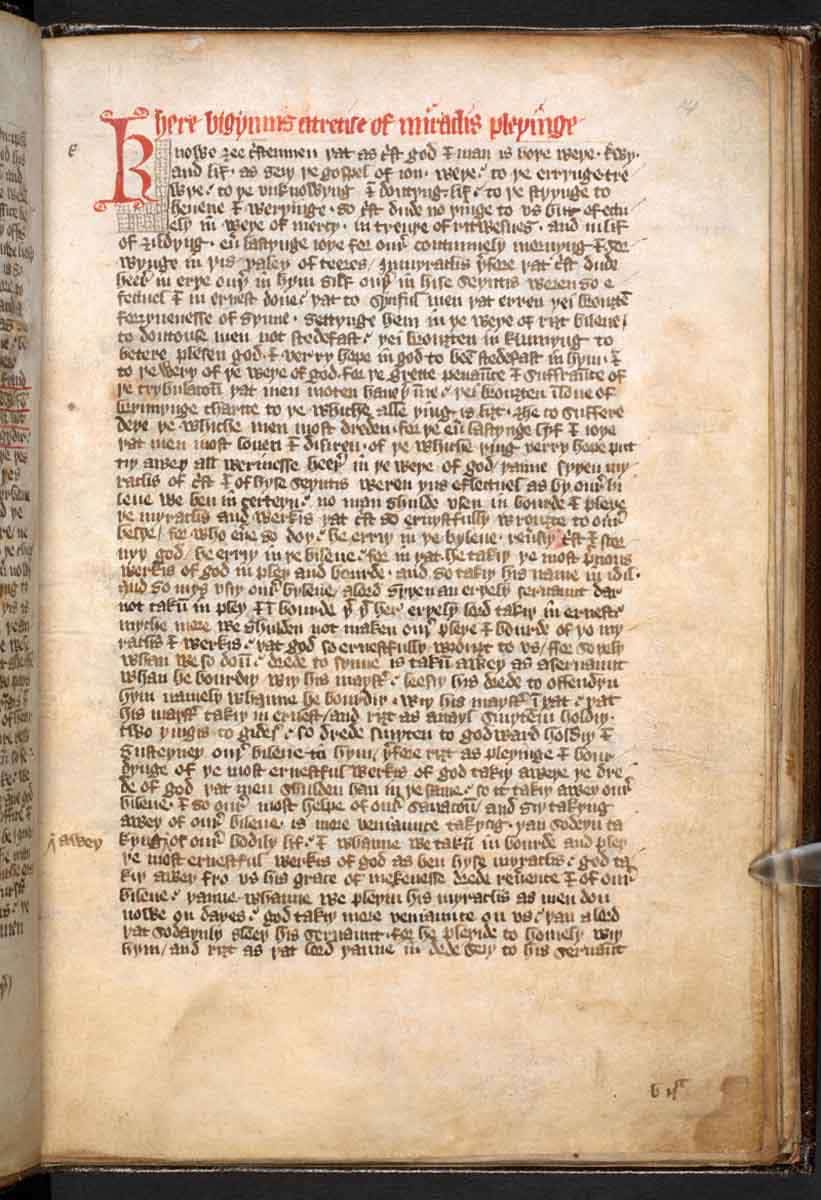 here bigynnis a tretise of miraclis pleyinge
Knowe ȝee cristenmen yat as crist god & man is boye weye · trewy ·
and lif · as seiy ye gospel of ion · weye · to ye errynge · tre
wye · to ye unknowyng & doutyng · lif · to ye stryynge to
hevene & weryinge · so crist dude no yinge to us but effectu
ely in weye of mercy · in treuye of ritwesnes · and in lif
of ȝildyng · evere lastynge ioye for oure contunuely mornyng & sor
wynge in yis valey of teeres / myraclis yerfore yat crist dude
heere in erye ouyer in hymsilf ouyer in hise seyntis weren so e
fectuel & in ernest done yat to synful men yat erren yei brouȝten
forȝyvenesse of synne · settynge hem in ye weye of riȝt bileve /
to doutouse men not stedefast · yei brouȝten in kunnyng to
betere plesen god & verry hope in god to been stedefast in hym · &
to ye wery of ye weye of god · for ye grette penaunce & suffraunce of
ye trybulacoun yat men moten have yerinne yei brouȝten in love of
brynnynge charite to ye whiche alle ying is liȝt · ȝhe to suffere
deye ye whiche men most dreden · for ye evere lastynge lyf & ioye
yat men most loven & disiren · of ye whiche ying verry hope put
tiy awey all werinesse heere in ye weye of god / yanne syyen my
raclis of crist & of hyse seyntis weren yus effectuel as by oure bi
leve we ben in certeyn · no man shulde usen in bourde & pleye
ye myraclis and werkis yat crist so ernystfully wrouȝte to oure
helye / for who evere so doy · he erriy in ye byleve · reversiy crist & scor
nyy god / he erriy in ye bileve · for in yat he takiy ye most precious
werkis of god in pley and bourde · and so takiy his name in idil ·
and so mysusiy oure byleve / a lord syyen an eryely servaunt dar
not takun in pley & in bourde yat yat her eryely lord takiy in ernest
myche more we shulden not maken oure pleye & bourde of yo my
raclis & werkis yat god so ernestfully wrouȝt to us / for soyely
whan we so doun drede to synne is takun awey as a servaunt
whan he bourdiy wiy his mayster leesiy his drede to offendyn
hym namely whanne he bourdiy · wiy his mayster in yat · yat
his mayster takiy in ernest / and riȝt as a nayl smyten in holdiy ·
two yingis to gidere · so drede smyten to godward holdiy &
susteyney oure bileve to hym / yerfore riȝt as pleyinge & bour
dynge of ye most ernestful werkis of god takiy aweye ye dre
de of god yat men shulden han in ye same · so it takiy awey oure
bileve · & so oure most helpe of oure savacoun / and siy takyng
awey of oure bileve · is more veniaunce takyng · yan sodeyn ta
kyng of oure bodily lif · & whanne we takun in bourde and pley
awey
ye most ernestful werkis of god as ben hyse myraclis god ta
kiy awey fro us his grace of mekenesse drede reverence & of oure
bileve · yanne whanne we pleyin his myraclis as men don
nowe on dayes · god takiy more veniaunce on us · yan a lord
yat sodaynly sleey his servaunt · for he pleyide to homely wiy
hym / and riȝt as yat lord yanne in dede seiy to his servaunt